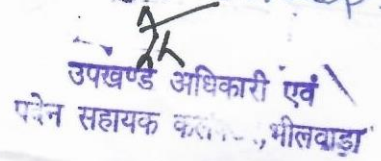 उपखण्ड अधिकारी एवं
पदेन सहायक ,भीलवाड़ा